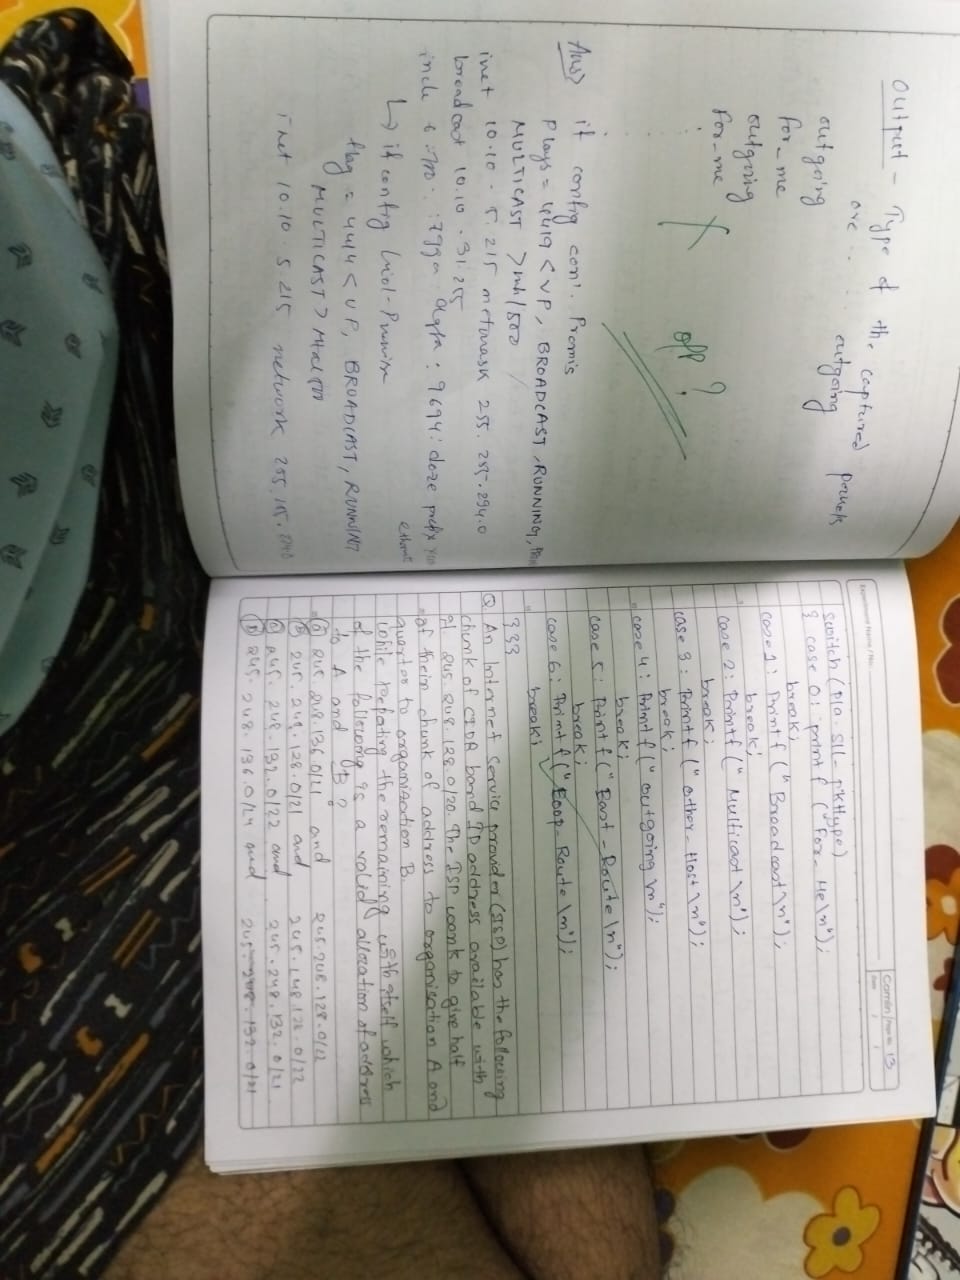 Output - Type of the captured packets
are .. .... outgoing
outgoing
for_me
outgoing
for-me
o/p ?
Ans> if config con'. Promis
Flags = 4419 < UP, BROADCAST, RUNNING,
MULTICAST > mh/500
inet 10.10 . 5.215 netmask 255. 255. 294.0
broadcast 10.10 .31.255
: 9694: prefix
ethernet
↳ if config
flag = 4414 < UP, BROADCAST, RUNNING
MULTICAST >
inet 10.10 . 5.215 network
Camlin Page No. 13
Experiment Name / No.:
Date / /
switch (pla. Sll- pkttype)
{ case 0: printf ("For_Me\n");
break;
case 1: Printf ("Broadcast\n");
break;
case 2: Printf (" Multicast \n");
break;
case 3: Printf (" Other-Host\n");
break;
case 4: Printf (" outgoing \n");
break;
case 5: Printf (" East - Route \n");
break;
case 6: Printf (" Loop- Route \n");
break;
}}}
Q An Internet Service provider (ISP) has the following
chunk of CIDR band ID address available with
it. 245. 248. 128. 0/20. The ISP wants to give half
of their chunk of address to organisation A and
quarter to organisation B.
while the remaining with itself which
of the following is a valid allocation of address
to A and B ?
(a) 245. 248. 136. 0/21 and 245.248.128.0/22
(B) 245. 248. 128.0/21 and 245.148.128.0/22
(c) 245. 248. 132.0/22 and 245.248.132.0/21
(D) 245. 248. 136.0/24 and 245.248.132.0/21